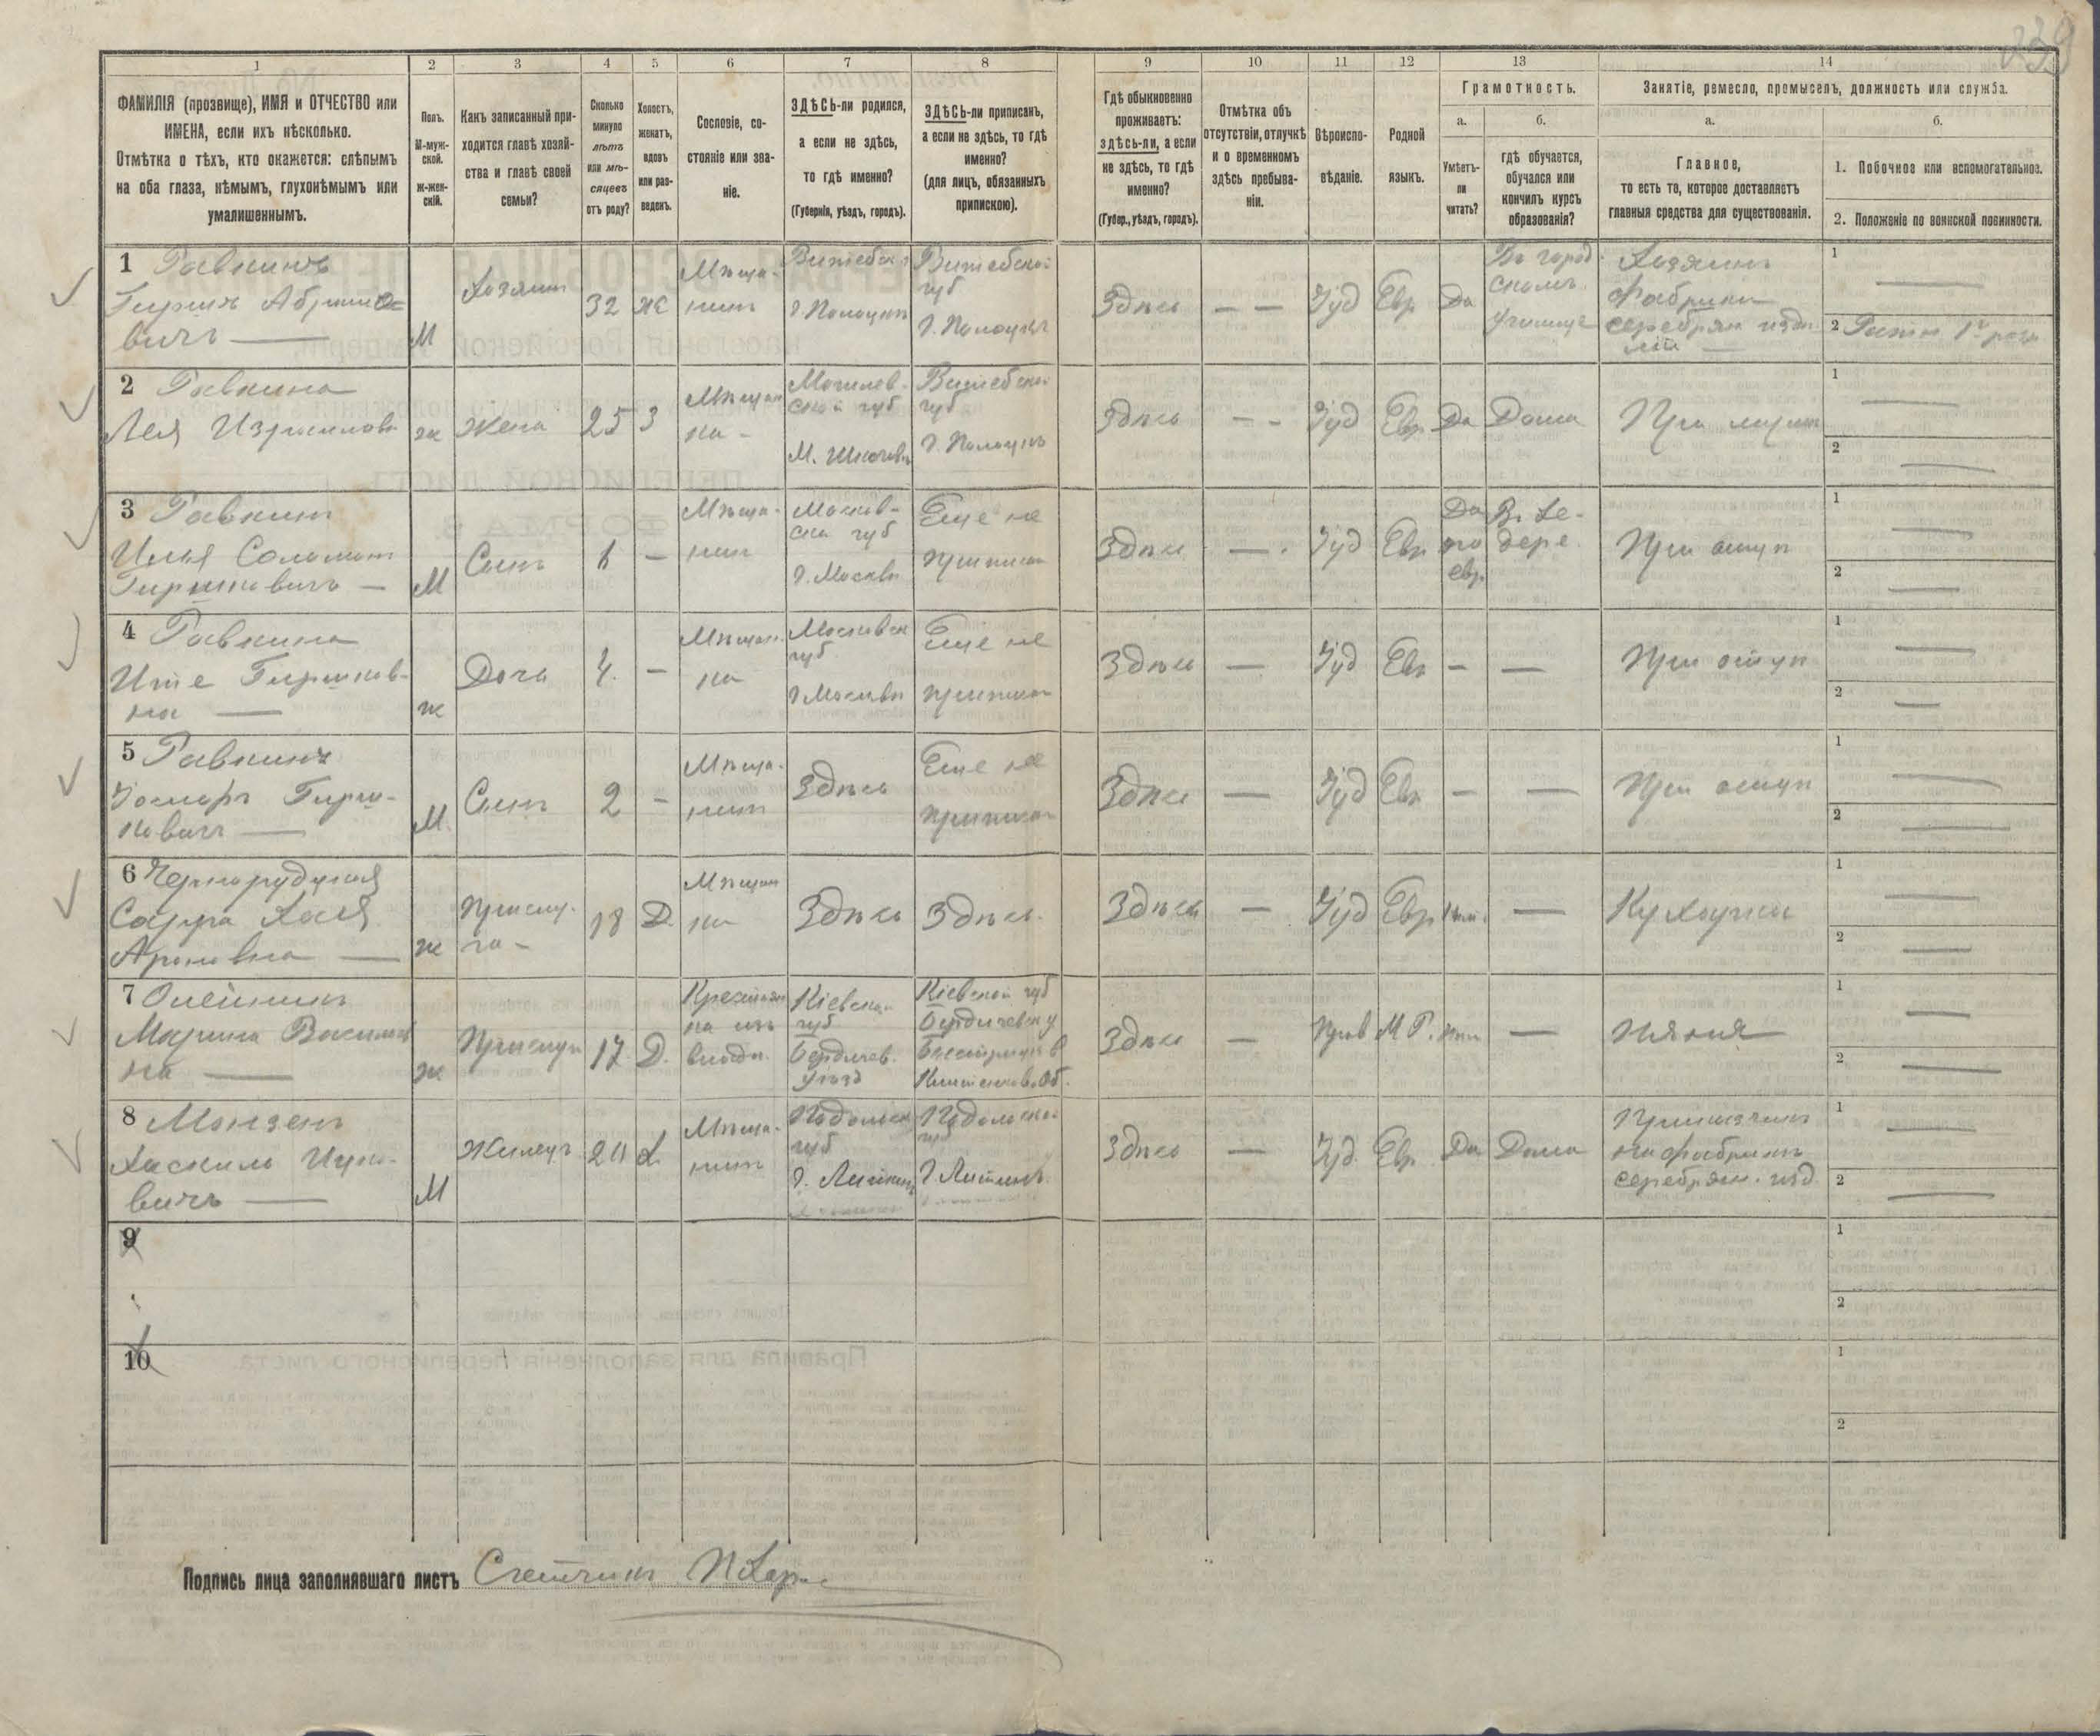 239
1
2
3
4
5
6
7
8
9
10
11
12
13
14
ФАМИЛІЯ (прозвище), ИМЯ и ОТЧЕСТВО или
ИМЕНА, если ихъ нѣсколько.
Отмѣтка о тѣхъ, кто окажется: слѣпымъ
на оба глаза, нѣмымъ, глухонѣмымъ или
умалишеннымъ.
Полъ.
М-муж-
ской.
Ж-жен-
скій.
Какъ записанный при-
ходится главѣ хозяй-
ства и главѣ своей
семьи?
Сколько
минуло
лѣтъ
или мѣ-
сяцевъ
отъ роду?
Холостъ,
женатъ,
вдовъ
или раз-
веденъ.
Сословіе, со-
стояніе или зва-
ніе.
ЗДѢСЬ-ли родился,
а если не здѣсь,
то гдѣ именно?
(Губернія, уѣздъ, городъ).
ЗДѢСЬ-ли приписанъ,
а если не здѣсь, то гдѣ
именно?
(для лицъ, обязанныхъ
припискою).
Гдѣ обыкновенно
проживаетъ:
здѣсь-ли, а если
не здѣсь, то гдѣ
именно?
(Губер., уѣздъ, городъ).
Отмѣтка объ
отсутствіи, отлучкѣ
и о временномъ
здѣсь пребыва-
ніи.
Вѣроиспо-
вѣданіе.
Родной
языкъ.
Грамотность.
а.
Умѣетъ-
ли
читать?
б.
гдѣ обучается,
обучался или
кончилъ курсъ
образованія?
Занятіе, ремесло, промыселъ, должность или служба.
а.
Главное,
то есть то, которое доставляетъ
главныя средства для существованія.
б.
1. Побочное или вспомогательное.
2. Положеніе по воинской повинности.
1 Равкинъ
Гиршъ Абрамо
вичъ
М
Хозяинъ
32
Ж
Мѣща-
нинъ
Витебск
г. Полоцкъ
Витебской
губ
г. Полоцкъ
Здѣсь
— —
Іуд
Евр
Да
Въ город
скомъ
училище
Хозяинъ
Фабрики
серебрян изд
лій
1
2 Ратн 1 раз
2 Равкина
Лея Израилова
ж
Жена
25
З
Мѣщан
ка -
Могилев-
ской губ
М. Шкловъ
Витебской
губ
г. Полоцкъ
Здѣсь
- -
Іуд
Евр
Да
Дома
При мужѣ
1
2
3 Равкинъ
Илья Соломонъ
Гиршовичъ —
М
Сынъ
6
—
Мѣща-
нинъ
Москов-
ска губ
г. Москва
Еще не
приписан
Здѣсь
—
Іуд
Евр
Да
по
евр
Въ Хе-
дере
При отцѣ
1
2
4 Равкина
Ите Гиршов-
на —
ж
Дочь
4.
—
Мѣщан
ка
Московск
губ
г Москва
Еще не
приписан
Здѣсь
—
Іуд
Евр
—
—
При отцѣ
1
2
5 Равкинъ
Гирш-
вичъ —
М.
Сынъ
2
-
Мѣща-
нинъ
Здѣсь
Еще не
приписан
Здѣсь
—
Іуд
Евр
-
—
При отцѣ
1
2
6 Чернорудцкая
Сарра Хая
Ароновна —
ж
Прислу-
га -
18
Д.
Мѣщан
ка
Здѣсь
Здѣсь.
Здѣсь
—
Іуд
Евр
—
Кухарка
1
2
7 Олейникъ
Марина Василье
на —
ж
Прислуга
17
Д.
Крестьян
ка изъ
Кіевская
губ
Бердичев.
уѣзд
Кіевской губ
Бердичевск у
Здѣсь
—
Прав
М Р.
—
няня
1
2
8
Ицко-
вичъ —
М
Жилецъ
Х.
Мѣща-
нинъ
Подольск
губ
г. Литинъ
Подольской
губ
г Литинъ
Здѣсь
—
Іуд
Евр
Да
Дома
Приказчикъ
на фабрикѣ
серебрян. изд
1
2
9
1
2
10
1
2
Подпись лица заполнявшаго листъ Счетчикъ